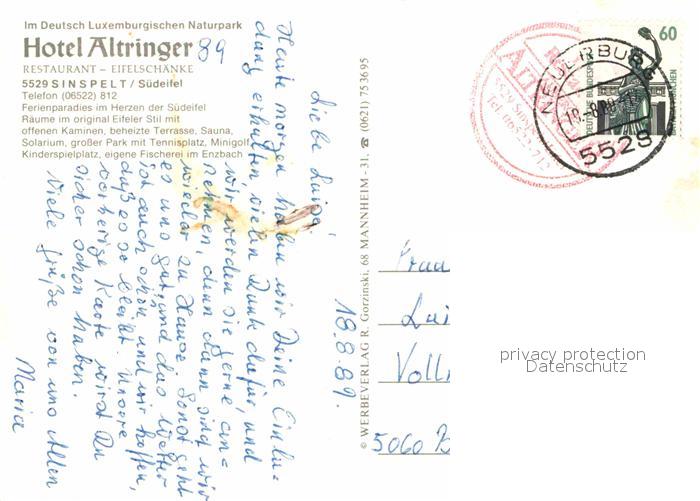 Im Deutsch Luxemburgischen Naturpark
Hotel Altringer
RESTAURANT – EIFELSCHÄNKE
5529 SINSPELT / Südeifel
Telefon (06522) 812
Ferienparadies im Herzen der Südeifel
Räume im original Eifeler Stil mit
offenen Kaminen, beheizte Terrasse, Sauna,
Solarium, großer Park mit Tennisplatz, Minigolf,
Kinderspielplatz, eigene Fischerei im Enzbach
89
18.8.89.
Liebe Luise!
Heute morgen haben wir Deine Einlu=
dung erhalten vielen Dank dafür, und
wir werden sie gerne an=
nehmen, denn dann sind wir
wieder zu Hause. Sonst geht
es uns gut, und das Wetter
ist auch schön und wir hoffen,
daß es so bleibt. Unsere
vorherige Karte wirst Du
sicher schon haben.
Viele Grüße von uns Allen
Maria
© WERBEVERLAG R. Gorzinski, 68 MANNHEIM - 31, ☎ (0621) 753695
Frau
Lui
Voll
5060
60
DEUTSCHE BUNDESPOST
MÜNCHEN
NEUERBURG
18.-8.89
5528
privacy protection
Datenschutz